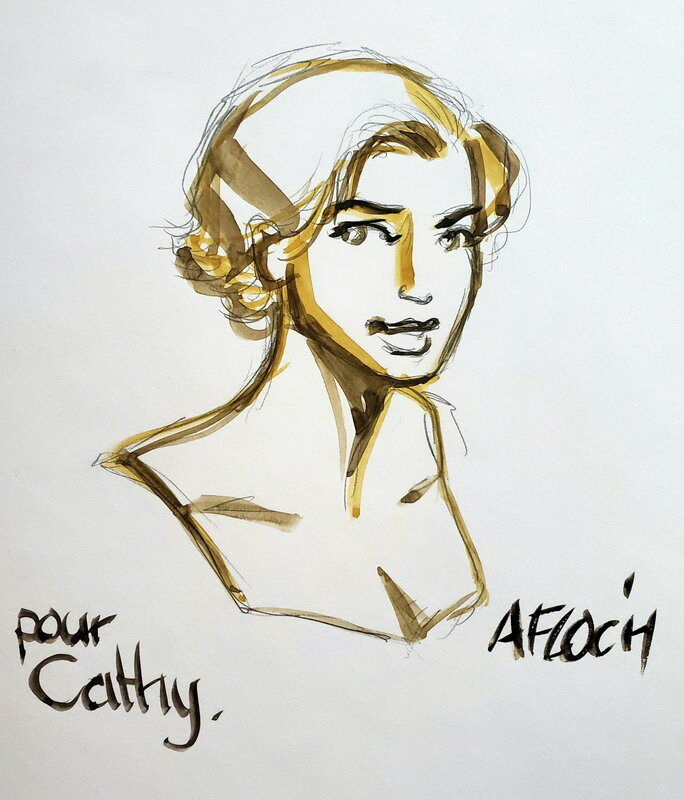 pour
Cathy.
AFLOC'H